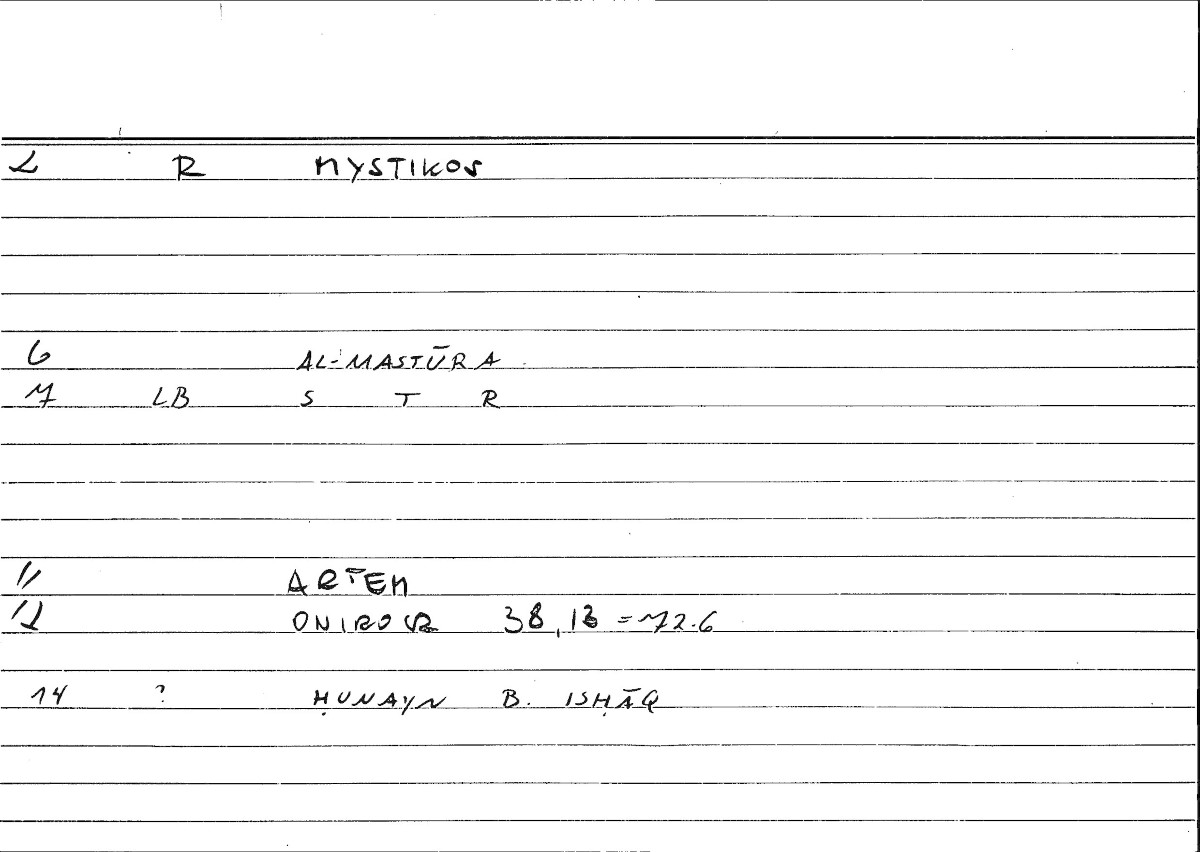 2 R MYSTIKOS
6 AL-MASTŪRA
7 LB S T R
11 ARTEM
12 ONIROCR 38,13 = 72.6
14 ? ḤUNAYN B. ISḤĀQ